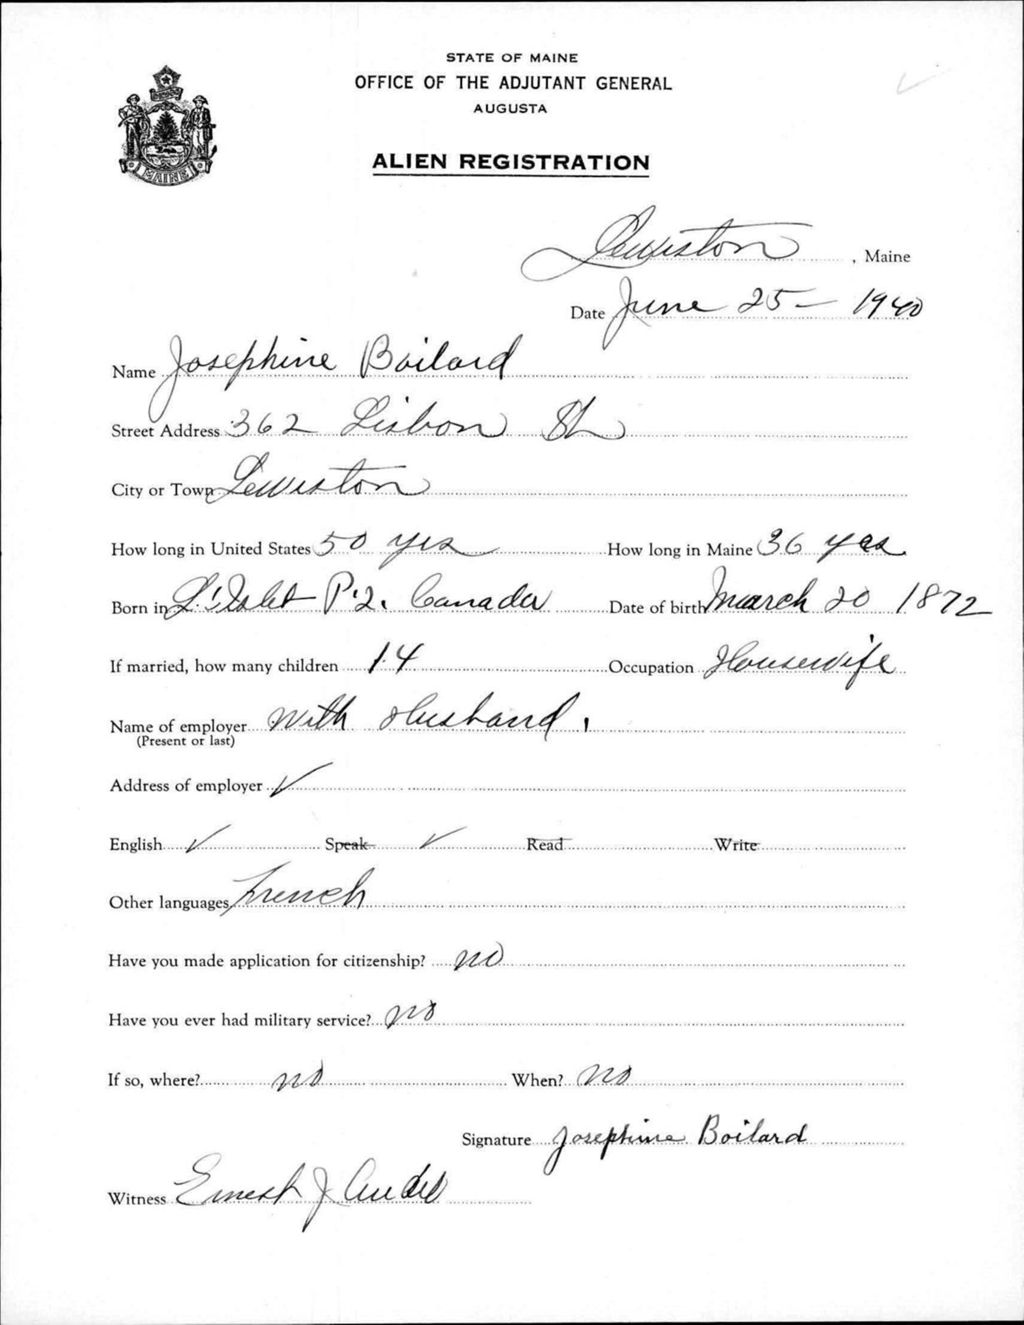 STATE OF MAINE
OFFICE OF THE ADJUTANT GENERAL
AUGUSTA
MAINE
ALIEN REGISTRATION
Lewiston, Maine
Date June 25 - 1940
Name Josephine Boilard
Street Address 362 Lisbon St
City or Town Lewiston
How long in United States 50 yrs How long in Maine 36 yrs
Born in L'Islet P.Q. Canada Date of birth March 20 1872
If married, how many children 14 Occupation Housewife
Name of employer with Husband.
(Present or last)
Address of employer ✓
English ✓ Speak ✓ Read Write
Other languages French
Have you made application for citizenship? no
Have you ever had military service? no
If so, where? no When? no
Signature Josephine Boilard
Witness Ernest J